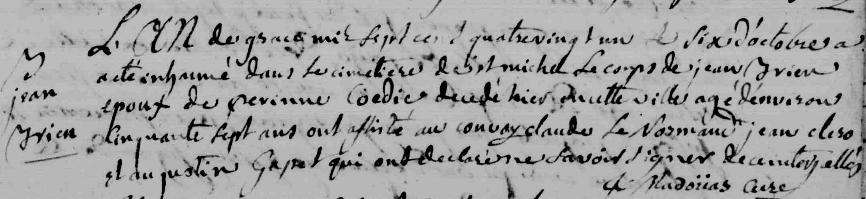 L'AN de grace mil sept cent quatrevingt un le six d'octobre a
jean
Irien
a eté inhumé dans le cimetiere de st michel le corps de jean Irien
epoux de perinne Coedic decedé hier en cette ville agé d'environ
Cinquante sept ans ont assisté au convoy claude le Normand jean clero
et augustin Gapet qui ont declaré ne savoir signer de ce interpellés
Cure